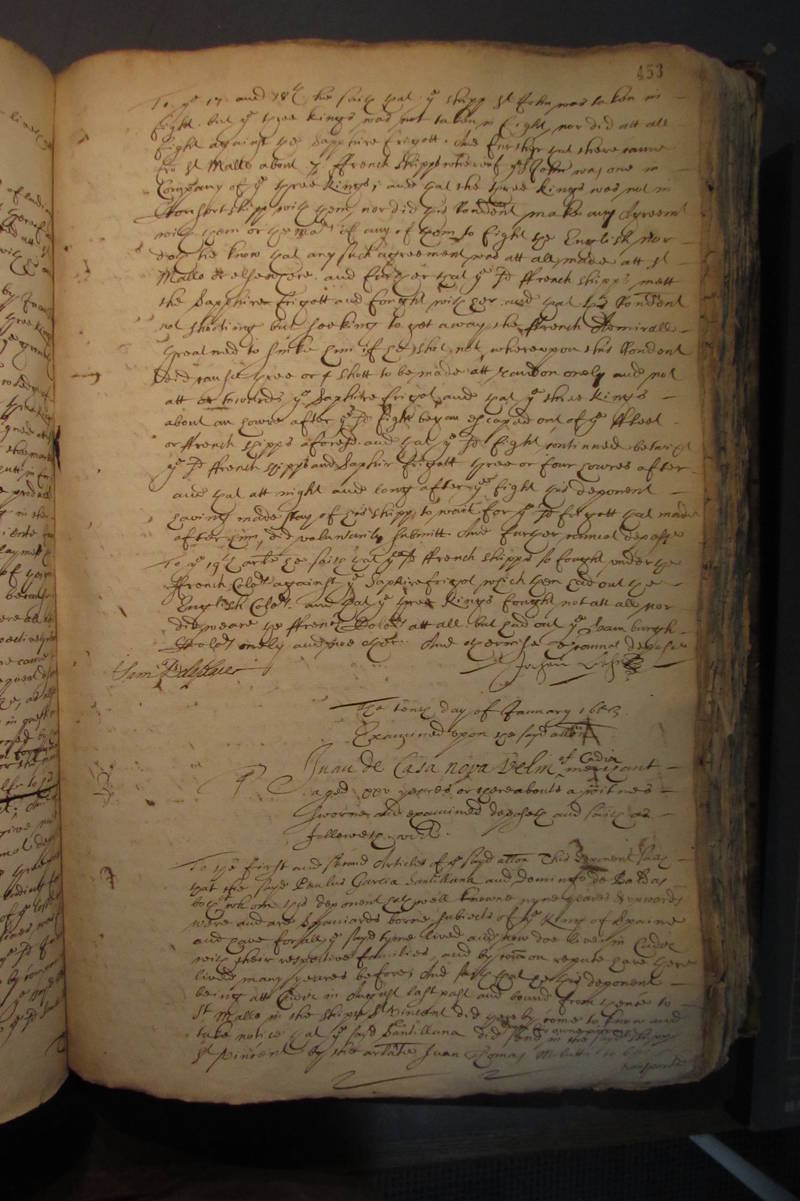 453
To ye 17 and 18th he saith that ye shipp St John was taken in
fight, but ye three kings was not taken in fight, nor did att all
fight against the Sapphire frigott. And further that there came
fro St Mallo about 7 ffrench shipps whereof ye St John was one in
Company of ye three kings, and that the three kings was not in
Consortshipp with them, nor did this Rendent make any Agreemt
with them or the Mars of any of them to fight the English nor
doth he know that any such agreement was att all made att St
Mallo or elsewhere. and further that ye sd ffrench shipps mett
the Sapphire Frigott and fought with her. and that this Rendent
not shooting but seeking to get away, the ffrench Admirall
threatned to sinke him if he shot not, whereupon this Rendent
did cause three or 4 shott to be made att random onely and not
att or towards ye Saphire frigot, and that ye three kings
about an howre after ye sd fight began escaped out of ye ffleet
or ffrench shipps aforesd. and that ye sd fight continued betwixt
ye sd ffrench shipps and Saphir frigott three or four howres after
and that att night and long after ye fight this deponent
having made stay of his shipp, to wait for ye sd frigott that made
after him, did voluntarily submitt. And further cannot depose
To ye 19th arte he saith that ye sd ffrench shipps so fought under the
ffrench Colors against ye Saphire frigot which then had out the
English Colors. and that ye three kings fought not att all nor
did weare the ffrench Colors att all but had out ye Hamburgh
Colors onely And otherwise cannot depose
The tenth day of January 1653.
Examined upon the sayd allon
Juan de Casa nova Velm of Cadiz merchant
aged xxv yeares or thereabouts a witnes
sworne and examined deposeth and saith as
followeth, vizt.
To the first and second Articles of the sayd allon This deponent saith
that the sayd Paulus Garcia Santillana and Domingo de
both whome this deponent hath well knowne nyne yeares & upwards
were and are Spaniards borne subjects of the King of Spaine
and have for all ye sayd tyme lived and now doe live in Cadiz
with their respective families, and by common repute have there
lived many yeares before; And saith that hee this deponent
being att Cadiz in August last past and bound from thence to
St Mallo in the shipp St Vincent did thereby come to know and
take notice that ye said Santillana did send in the sayd shipp
St Vincent by the arlate Juan Thomas